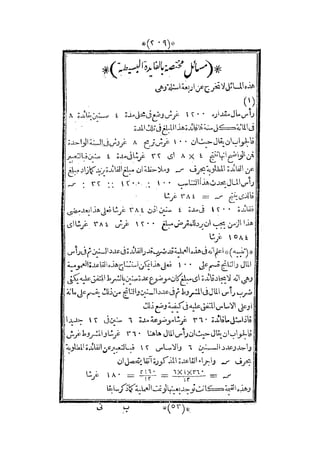 *(٢٠٩)*
*(مسائل مختصة بالفايدة البسيطة)*
هذه المسائل لا تخرج عن اربعة اسئلة وهى
(١)
رأس مال مقداره ١٢٠٠ غرش وضع فى محل مدة ٤ سنين بفائدة ٨
فى المائة كل سنة فما فائدة هذا المبلغ فى تلك المدة
فالجواب ان يقال حيث ان ١٠٠ غرش تربح ٨ غروش فى السنة الواحدة
فمن الواضح انها تنتج ٤ × ٨ اى ٣٢ غرشا فى مدة ٤ سنين فبالتعبير
عن الفائدة المطلوبة بحرف سـ وملاحظة ان مبلغ الفائدة يزيد كلما زاد مبلغ
رأس المال يحدث هذا التناسب ١٠٠ : ١٢٠٠ :: ٣٢ : سـ
فالذى ينتج سـ = ٣٨٤ غرشا
ففائدة ١٢٠٠ فى مدة ٤ سنين اذن ٣٨٤ غرشا فعلى هذا بعد مضى
هذا الزمن يجب ان يرد للمقرض مبلغ ١٢٠٠ غرش و ٣٨٤ غرشا اى
١٥٨٤ غرشا
*(تنبيه)* اعلم انه فى هذه العملية قد ضرب قدر الفائدة فى عدد السنين ثم فى رأس
المال والناتج قسم على ١٠٠ فعلى هذا يمكن استنتاج هذه القاعدة العمومية
وهى انه لايجاد فائدة اى مبلغ كان موضوع عدة سنين بالشرط المتفق عليه يكفى
ضرب رأس المال فى المشروط ثم فى عدد السنين والناتج من ذلك يقسم على مائة
او على الاساس المتفق عليه فى كيفية وضع ذلك
فاذا سئل ما فائدة ٣٦٠ غرشا موضوعة مدة ٦ سنين فى ١٢ جديدا
فالجواب ان يقال حيث ان رأس المال هاهنا ٣٦٠ غرشا والمشروط غرش
واحد وعدد السنين ٦ والاساس ١٢ فبالتعبير عن الفائدة المطلوبة
بحرف سـ واجراء القاعدة المذكورة آنفا يتحصل ان
سـ = ٣٦٠×١×٦ / ١٢ = ٢١٦٠ / ١٢ = ١٨٠ غرشا
وهذه القيمة كانت توجد بعينها لو تمت العملية كما ذكر سابقا
*(٥٣)* ب نى